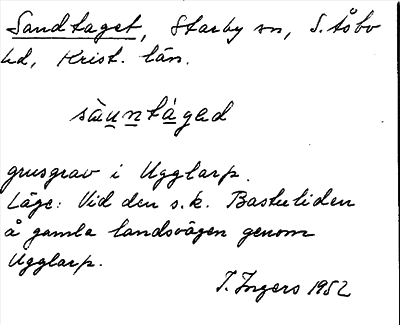 Sandtaget, Starby sn, S. Åsbo
hd, Krist. län.
sàuntágad
grusgrav i Ugglarp.
Läge: Vid den s.k. Bastuliden
å gamla landsvägen genom
Ugglarp.
T. Ingers 1952